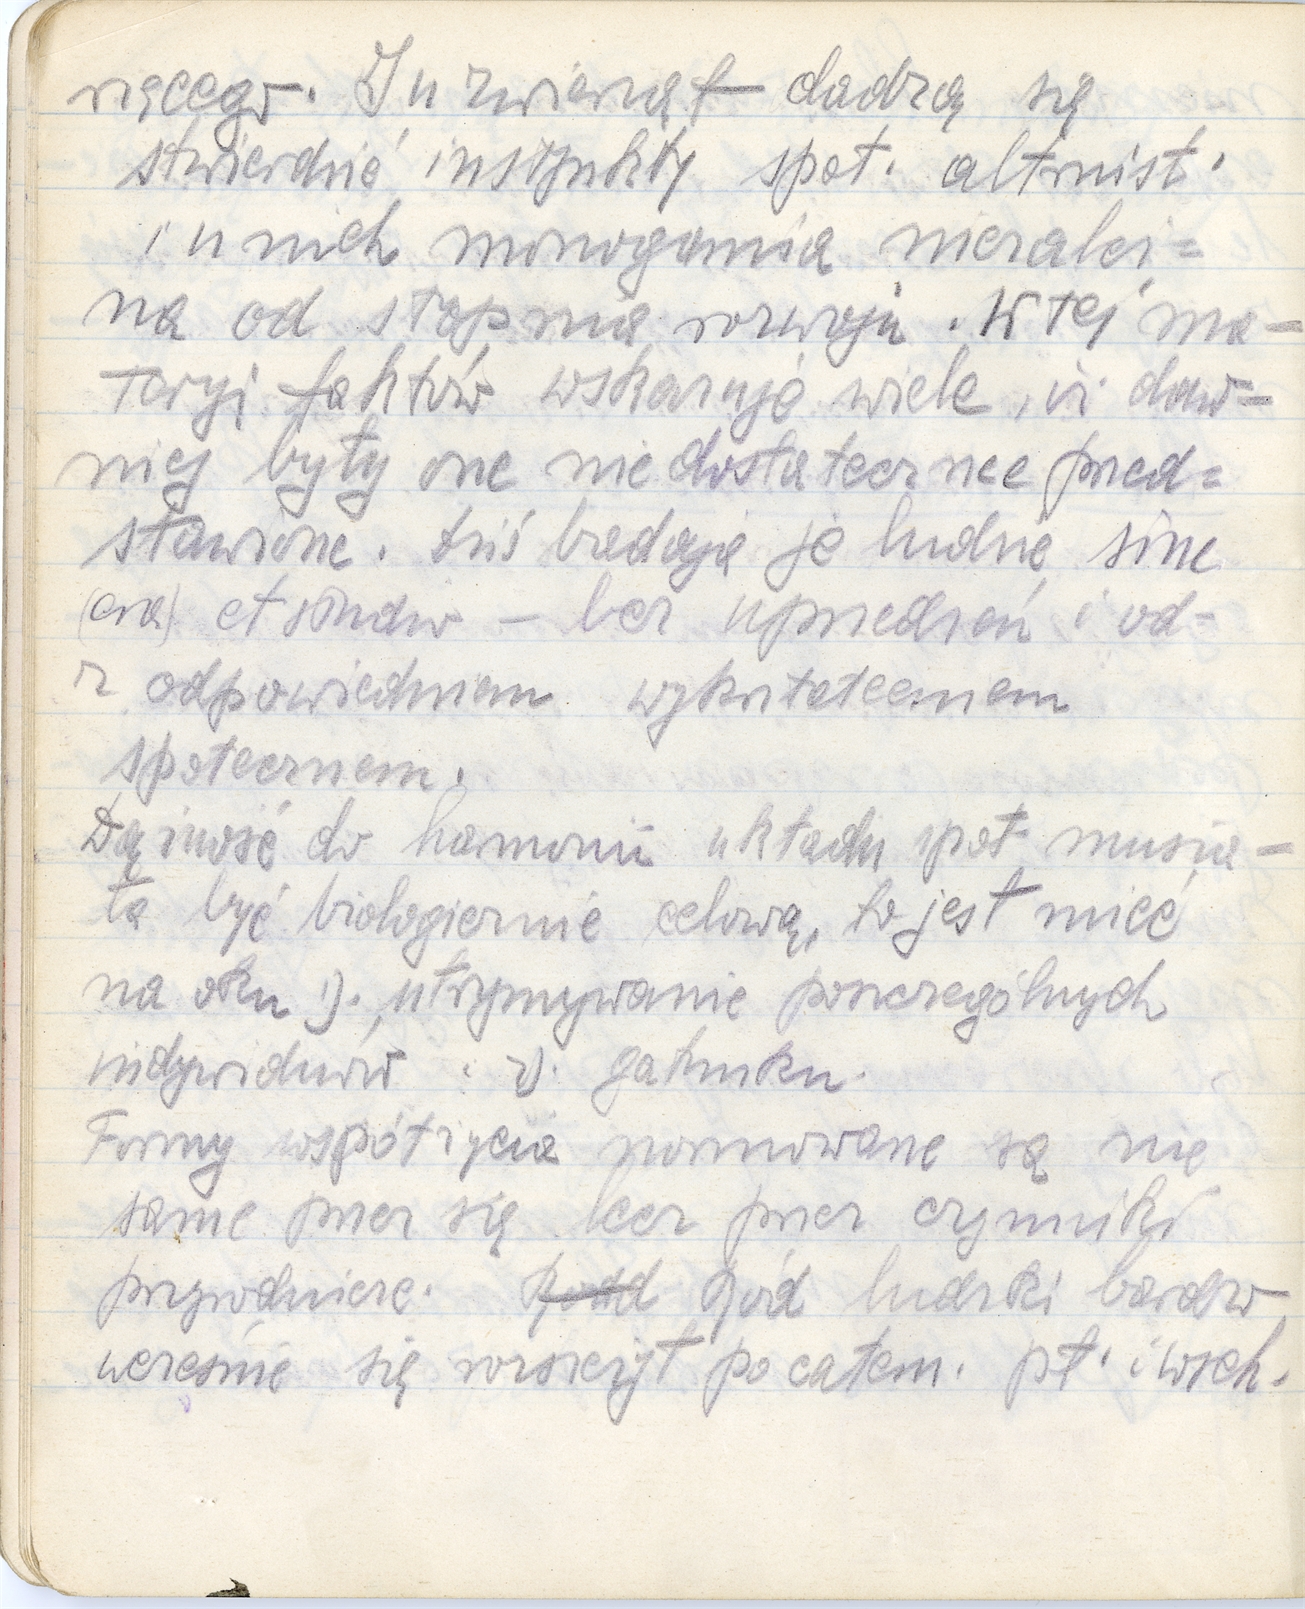 rzęcego. I u zwierząt dadzą się
stwierdzić instynkty społ. altruist.
i u nich monogamia niezależ=
na od stopnia rozwoju. W tej ma-
teryi faktów wskazuje wiele, iż daw=
niej były one niedostatecznee przed=
stawione. Dziś badają je ludzie sine
(era) et studio – bez uprzedzeń i od-
z odpowiedniem wykształceniem
społecznem.
Dążność do harmonii układu społ musia-
ła być biologicznie celową, to jest mieć
na oku 1). utrzymywanie poszczególnych
indywiduów i 2). gatunku.
Formy współżycia normowane są nie
same przez się lecz przez czynniki
przyrodnicze. Ród ludzki bardzo
wcześnie się rozszerzył po całem. pł. i wsch.